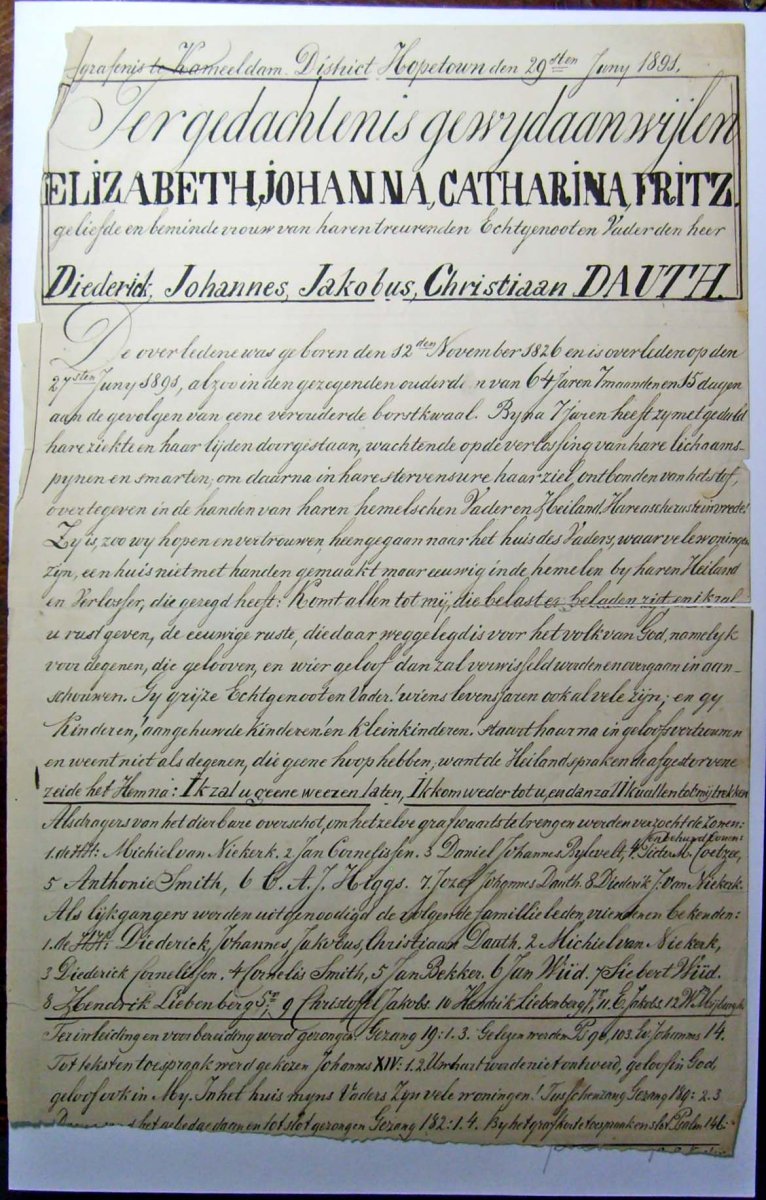 grafenis te Kameeldam. District Hopetown den 29sten Juny 1891.
Ter gedachtenis gewyd aan wijlen
ELIZABETH, JOHANNA, CATHARINA, FRITZ.
geliefde en beminde vrouw van haren treurenden Echtgenoot en Vader den heer
Diederick, Johannes, Jakobus, Christiaan DAUTH.
De overledene was geboren den 12den November 1826 en is overleden op den
27sten Juny 1891, alzoo in den gezegenden ouderdom van 64 Jaren 7 maanden en 15 dagen
aan de gevolgen van eene verouderde borstkwaal. Byna 7 jaren heeft zy met geduld
hare ziekte en haar lijden doorgestaan, wachtende op de verlossing van hare lichaams-
pynen en smarten; om daarna in hare stervensure haar ziel, ontbonden van het stof,
over te geven in de handen van haren hemelschen Vader en Heiland. Hare asche ruste in vrede!
Zy is, zoo wy hopen en vertrouwen, heengegaan naar het huis des Vaders, waar vele woningen
zijn, een huis niet met handen gemaakt maar eeuwig in de hemelen by haren Heiland
en Verlosser, die gezegd heeft: Komt allen tot mij, die belast en beladen zijt en ik zal
u rust geven, de eeuwige ruste, die daar weggelegd is voor het volk van God, namelyk
voor degenen, die gelooven, en wier geloof dan zal verwisseld worden en overgaan in aan-
schouwen. Gy grijze Echtgenoot en Vader! wiens levensjaren ook al vele zijn; en gy
Kinderen, aangehuwde kinderen! en Kleinkinderen. staart haar na in geloofsvertrouwen
en weent niet als degenen, die geene hoop hebben, want de Heiland sprak en de afgestorvene
zeide het Hem na: Ik zal u geene weezen laten, Ik kom weder tot u, en dan zal Ik u allen tot mij trekken
Als dragers van het dierbare overschot, om hetzelve grafwaarts te brengen werden verzocht de zonen:
en behuwd zonen:
1. de HH: Michiel van Niekerk. 2 Jan Cornelissen. 3 Daniel Johannes Bylevelt, 4. Pieter M. Coetzee,
5 Anthonie Smith, 6 C. A. J. Higgs. 7. Jozef Johannes Dauth. 8 Diederik J. van Niekerk.
Als lijkgangers worden uitgenoodigd de volgende famillieleden, vrienden en bekenden:
1. de HH: Diederick, Johannes, Jakobus, Christiaan Dauth. 2 Michiel van Niekerk,
3 Diederick Cornelissen. 4 Cornelis Smith, 5 Jan Bekker. 6 Jan Wiid. 7 Siebert Wiid.
8 Hendrik Liebenberg Sr. 9 Christoffel Jakobs. 10 Hendrik Liebenberg Jr. 11. E. Jakobs. 12 W. Myburgh.
Ter inleiding en voorbereiding werd gezongen: Gezang 19: 1. 3. Gelezen werden Ps. 90, 103. Johannes 14.
Tot tekst en toespraak werd gekozen Johannes XIV: 1.2 Uw hart worde niet ontroerd, geloof in God,
geloof ook in My. In het huis myns Vaders zyn vele woningen! Tusschenzang Gezang 180: 2. 3
het gebed gedaan en tot slot gezongen Gezang 182: 1. 4. By het graf korte toespraak en slot. Psalm 146: